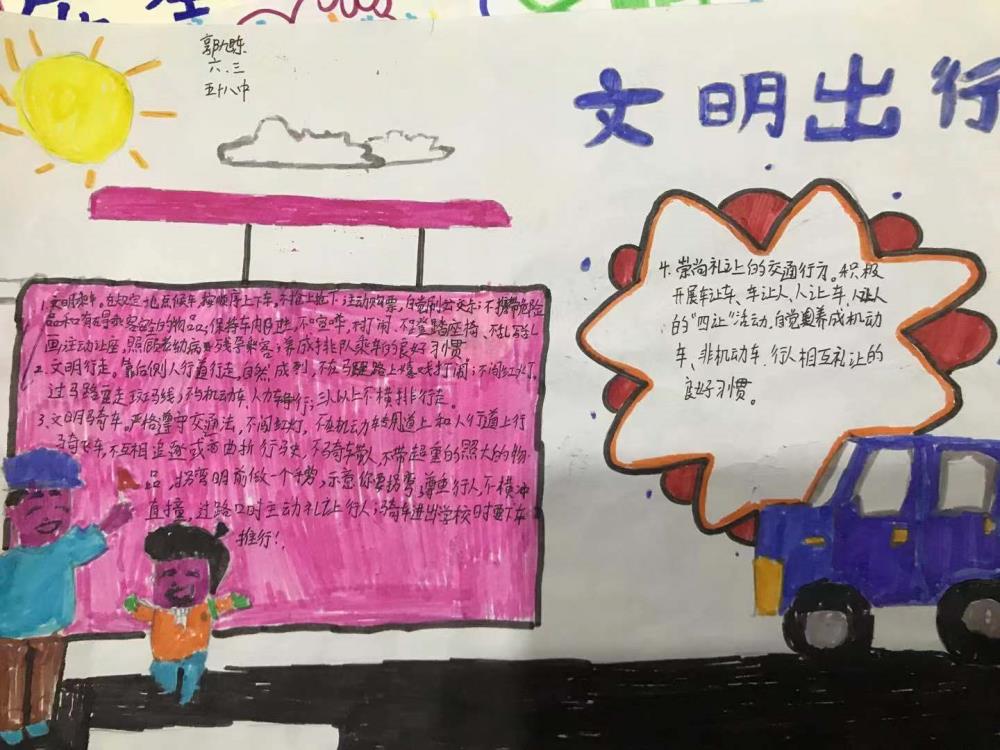 郭
六.三
五十八中
文明出行
1.文明乘车。在规定地点候车,按顺序上下车,不抢上抢下,主动购票,自觉刷公交卡;不携带危险
品和有碍乘客的物品;保持车内,不喧哗,打闹,不蹬踏座椅、不乱写乱
画;主动让座,照顾老幼病残孕乘客;养成排队乘车的良好习惯
2.文明行走。靠右侧人行道行走,自然成列,不在马路上嬉戏打闹;不闯红灯,
过马路要走斑马线;不与机动车、人力车;三人以上不横排行走。
3.文明骑车。严格遵守交通法,不闯红灯,不在机动车专用道上和人行道上行
骑飞车,不互相追逐或曲折行驶,不骑车带人,不带超重的大的物
品,拐弯前做一个手势,示意你要拐弯,尊重行人,不横冲
直撞,过路口时主动礼让行人;骑车进出学校时要下车
推行!
4.崇尚礼让的交通行为。积极
开展车让车、车让人、人让车、人让人
的“四让”活动,自觉养成机动
车、非机动车、行人相互礼让的
良好习惯。